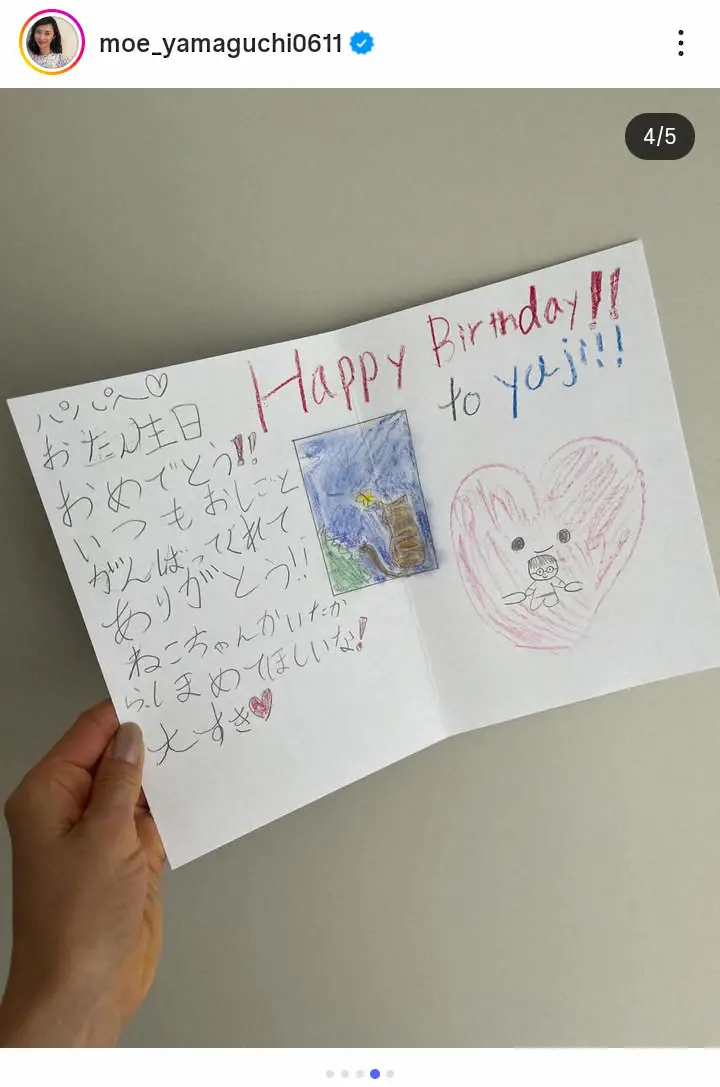 moe_yamaguchi0611
4/5
Happy Birthday!!
to yaji!!!
パパへ♡
おたん生日
おめでとう!!
いつもおしごと
がんばってくれて
ありがとう!!
ねこちゃんかいたか
らしまめてほしいな!
大すき♥